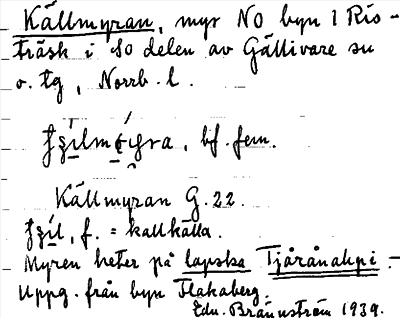 Källmyran, myr NO byn 1 Ris-
träsk i SO delen av Gällivare sn
o. tg, Norrb. l.
bf. fem.
Källmyran G. 22.
f. = kallkälla.
Myren heter på lapska Tjårånalipi.-
Uppg. från byn Flakaberg.
Edv. Brännström 1939.